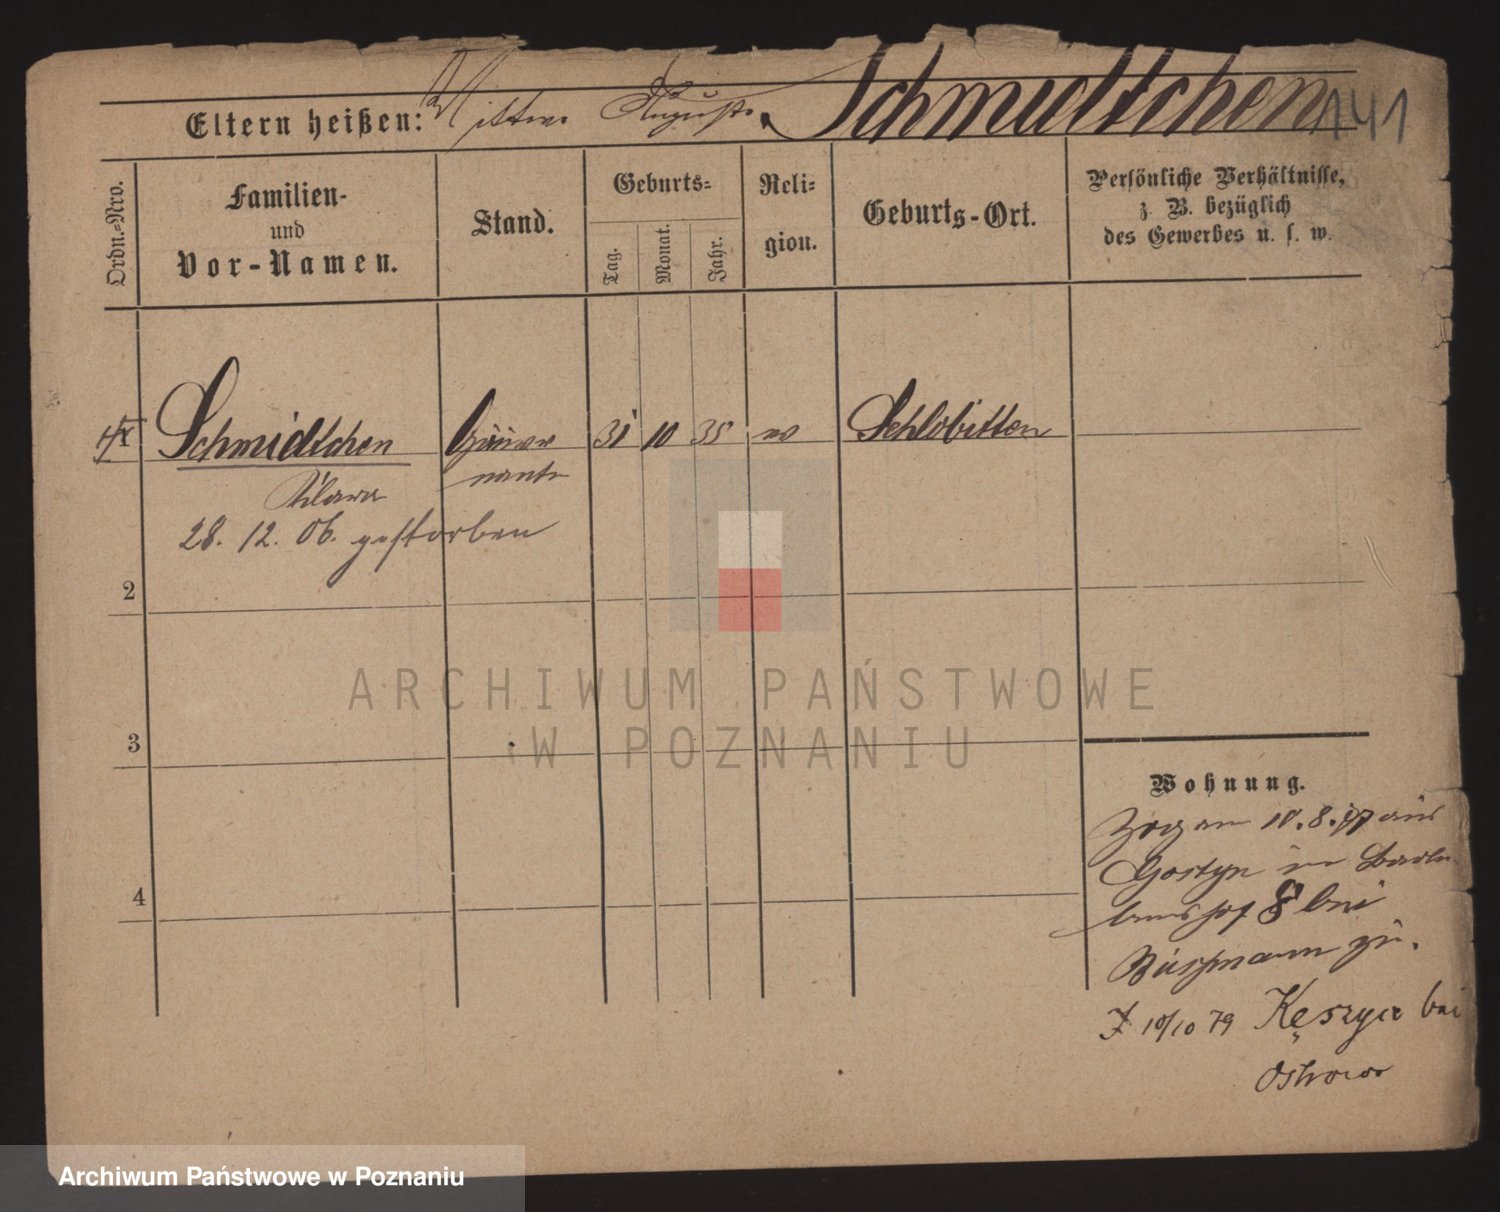 Eltern heißen: Auguste Schmidtchen 141
Ordn.-Nro.
Familien-
und
Vor-Namen.
Stand.
Geburts-
Tag.
Monat.
Jahr.
Reli-
gion.
Geburts-Ort.
Persönliche Verhältnisse,
z. B. bezüglich
des Gewerbes u. s. w.
Schmidtchen Gouver 31 10 35 ev Schlobitten
Klara nante
28. 12. 06. gestorben
2
3
4
Wohnung.
Zog am 10.8. aus
Gostyn in
8 bei
zu.
10/10 79 Kęszyce bei
Ostrowo
ARCHIWUM PAŃSTWOWE
W POZNANIU
Archiwum Państwowe w Poznaniu